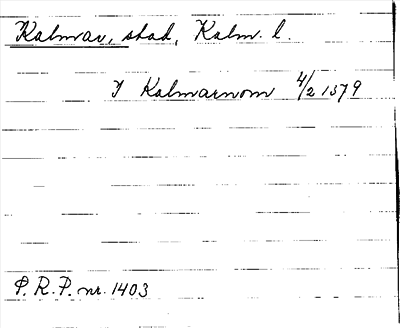 Kalmar, stad, Kalm. l.
I Kalmarnom 4/2 1379
P. R. P. nr. 1403